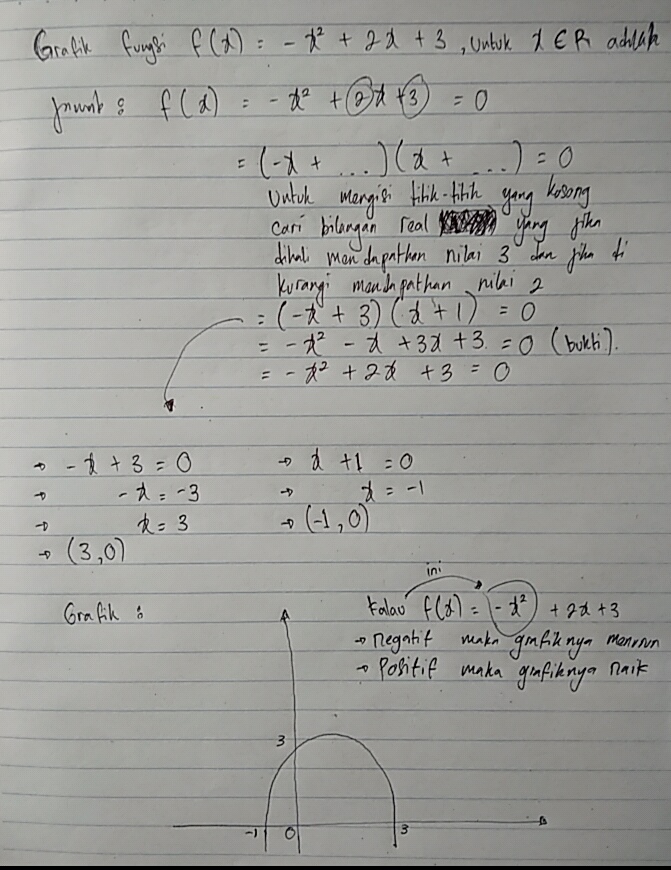 Grafik fungsi f(x) = -x² + 2x + 3, untuk x ∈ R adalah
Jawab : f(x) = -x² + 2x + 3 = 0
= (-x + ...)(x + ...) = 0
Untuk mengisi titik-titik yang kosong
cari bilangan real yang jika
dikali mendapatkan nilai 3 dan jika di
kurangi mendapatkan nilai 2
= (-x + 3)(x + 1) = 0
= -x² - x + 3x + 3 = 0 (bukti).
= -x² + 2x + 3 = 0
→ -x + 3 = 0
→ -x = -3
→ x = 3
→ (3,0)
→ x + 1 = 0
→ x = -1
→ (-1,0)
Grafik :
ini
kalau f(x) = -x² + 2x + 3
→ negatif maka grafiknya menurun
→ Positif maka grafiknya naik
3
-1 0 3